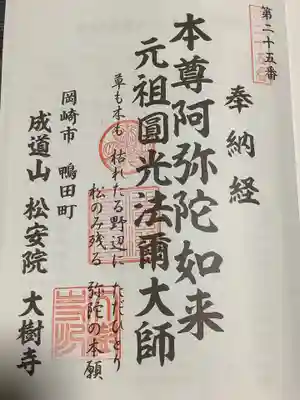 第二十五番
奉納経
本尊阿弥陀如来
元祖圓光法爾大師
草も木も 枯れたる野辺に ただひとり
松のみ残る 弥陀の本願
岡崎市 鴨田町
成道山 松安院 大樹寺